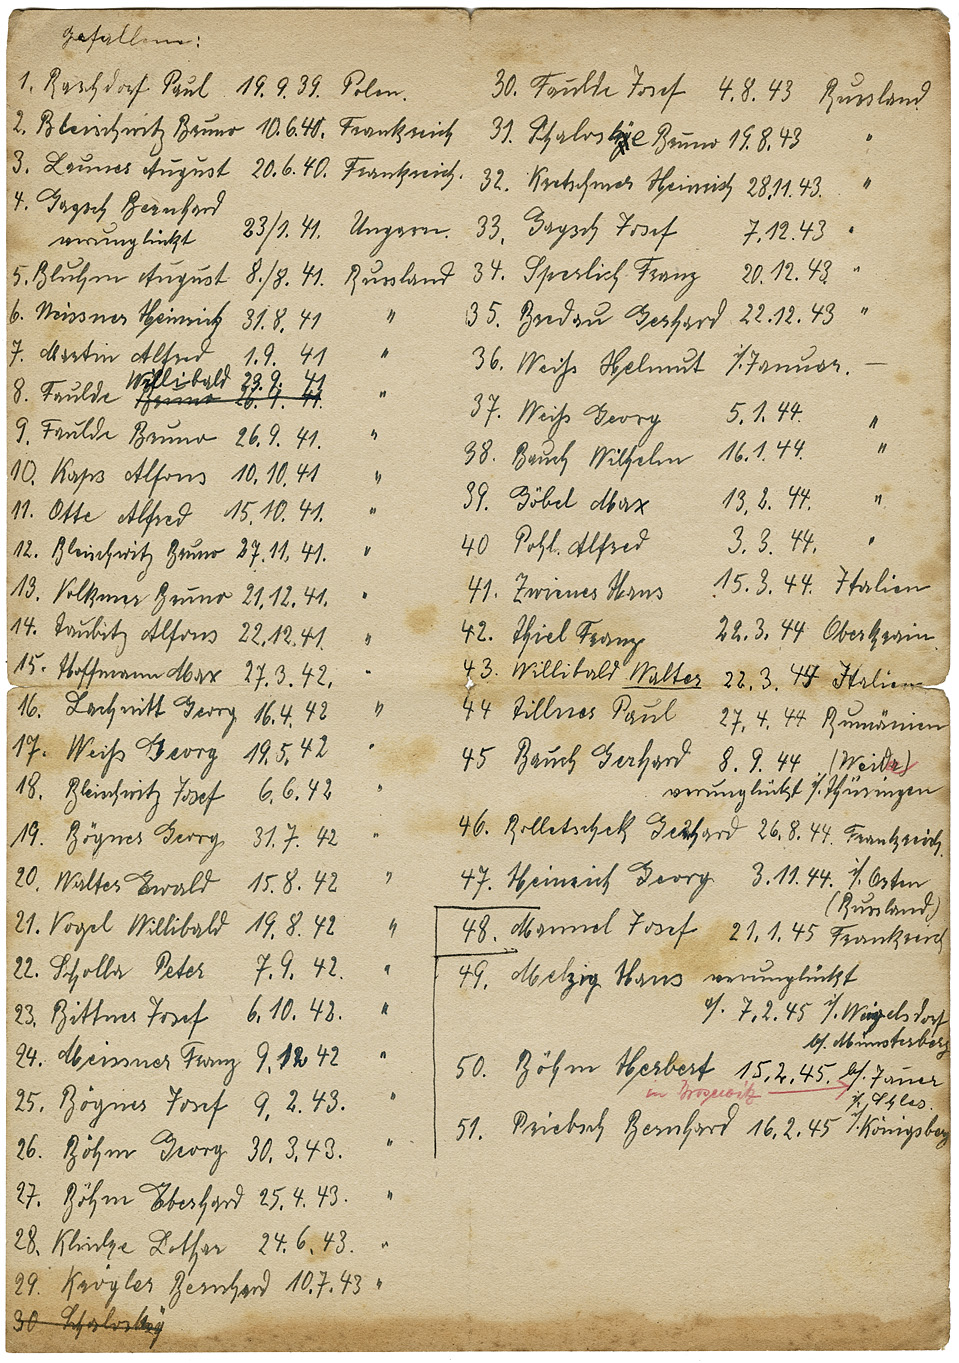 Gefallene:
1. Raschdorf Paul 19.9.39. Polen.
2. Bleischwitz Bruno 10.6.40. Frankreich
3. Launer August 20.6.40. Frankreich.
4. Gagsch Bernhard
verunglückt 23/1.41. Ungarn.
5. Bluhm August 8./8.41. Russland
6. Missner Heinrich 31.8.41 "
7. Martin Alfred 1.9.41 "
Willibald 23.9.41
8. Faulde Bruno 26.9.41. "
9. Faulde Bruno 26.9.41. "
10. Kaps Alfons 10.10.41 "
11. Otte Alfred 15.10.41. "
12. Bleischwitz Bruno 27.11.41. "
13. Volkmer Bruno 21.12.41. "
14. Taubitz Alfons 22.12.41 "
15. Hoffmann Max 27.3.42. "
16. Lachnitt Georg 16.4.42 "
17. Weiß Georg 19.5.42 "
18. Bleischwitz Josef 6.6.42 "
19. Bögner Georg 31.7.42 "
20. Walter Ewald 15.8.42 "
21. Vogel Willibald 19.8.42 "
22. Scholla Peter 7.9.42. "
23. Bittner Josef 6.10.42. "
24. Meissner Franz 9.12 42 "
25. Bögner Josef 9.2.43. "
26. Böhm Georg 30.3.43. "
27. Böhm Eberhard 25.4.43. "
28. Klinke Lothar 24.6.43. "
29. Krögler Bernhard 10.7.43 "
30 Schalosky
30. Faulde Josef 4.8.43 Russland
31. Schaloske Bruno 19.8.43 "
32. Kretschmer Heinrich 28.11.43. "
33. Gagsch Josef 7.12.43 "
34. Sperlich Franz 20.12.43. "
35. Bredau Gerhard 22.12.43 "
36. Weiß Helmut i/Januar. —
37. Weiß Georg 5.1.44. "
38. Bauch Wilhelm 16.1.44. "
39. Göbel Max 13.2.44. "
40 Pohl. Alfred 3.3.44. "
41. Zwiener Hans 15.3.44. Italien
42. Thiel Franz 22.3.44 Oberkrain.
43. Willibald Walter 22.3.44 Italien
44 Tillner Paul 27.4.44 Rumänien
45 Bauch Gerhard 8.9.44 (Weida)
verunglückt i/Thüringen
46. Rolletschek Gerhard 26.8.44 Frankreich.
47. Heinrich Georg 3.11.44. i/Osten
(Russland)
48. Mannel Josef 21.1.45 Frankreich
49. Melzig Hans verunglückt
a/. 7.2.45 i/Weigelsdorf
b/. Münsterberg
50. Böhm Herbert 15.2.45. b/. Jauer
in Brosewitz i/Schles.
51. Priebsch Bernhard 16.2.45 i/Königsberg